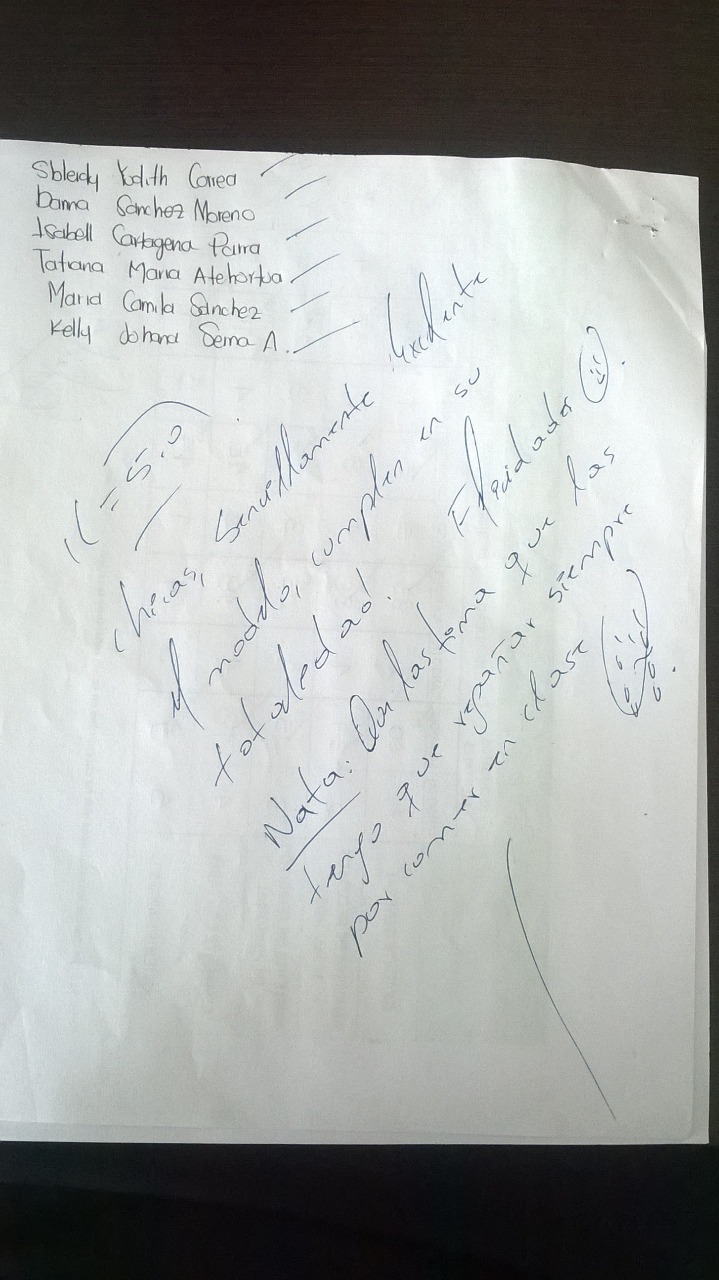 Sbleidy Yodith Correa
Danna Sánchez Moreno
Isabell Cartagena Parra
Tatiana Maria Atehortua
Maria Camila Sánchez
Kelly Johana Serna A.
5.0
Chicas, sencillamente Excelente
el modelo, cumplen en su
totaledad. Felicidades
Nata: Que lastima que las
tengo que regañar siempre
por comer en clase